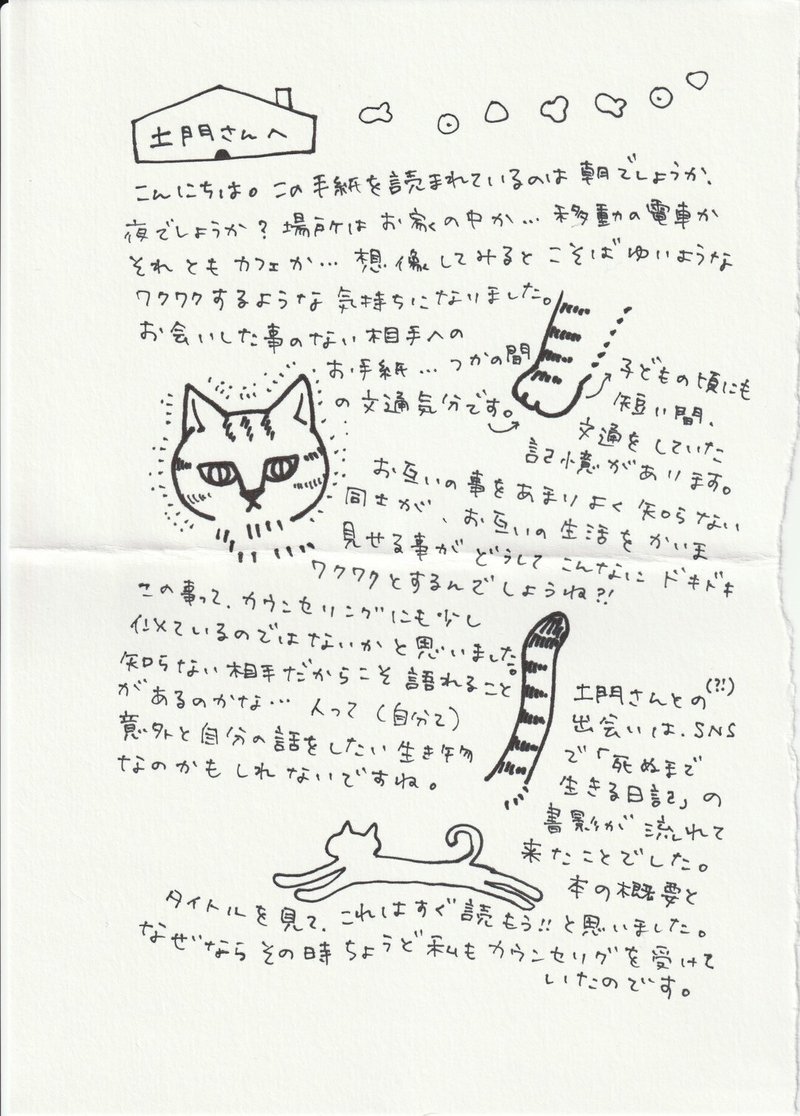 土門さんへ
こんにちは。この手紙を読まれているのは朝でしょうか、
夜でしょうか？場所はお家の中か…移動の電車か
それともカフェか…想像してみるとこそばゆいような
ワクワクするような気持ちになりました。
お会いした事のない相手への
お手紙…つかの間
の文通気分です。
子どもの頃にも
短い間、
文通をしていた
記憶があります。
お互いの事をあまりよく知らない
同士が、お互いの生活をかいま
見せる事がどうしてこんなにドキドキ
ワクワクとするんでしょうね?!
この事って、カウンセリングにも少し
似ているのではないかと思いました。
知らない相手だからこそ語れること
があるのかな…人って（自分て）
意外と自分の話をしたい生き物
なのかもしれないですね。
土門さんとの(?!)
出会いは、SNS
で「死ぬまで
生きる日記」の
書影が流れて
来たことでした。
本の概要と
タイトルを見て、これはすぐ読もう!!と思いました。
なぜならその時ちょうど私もカウンセリグを受けて
いたのです。